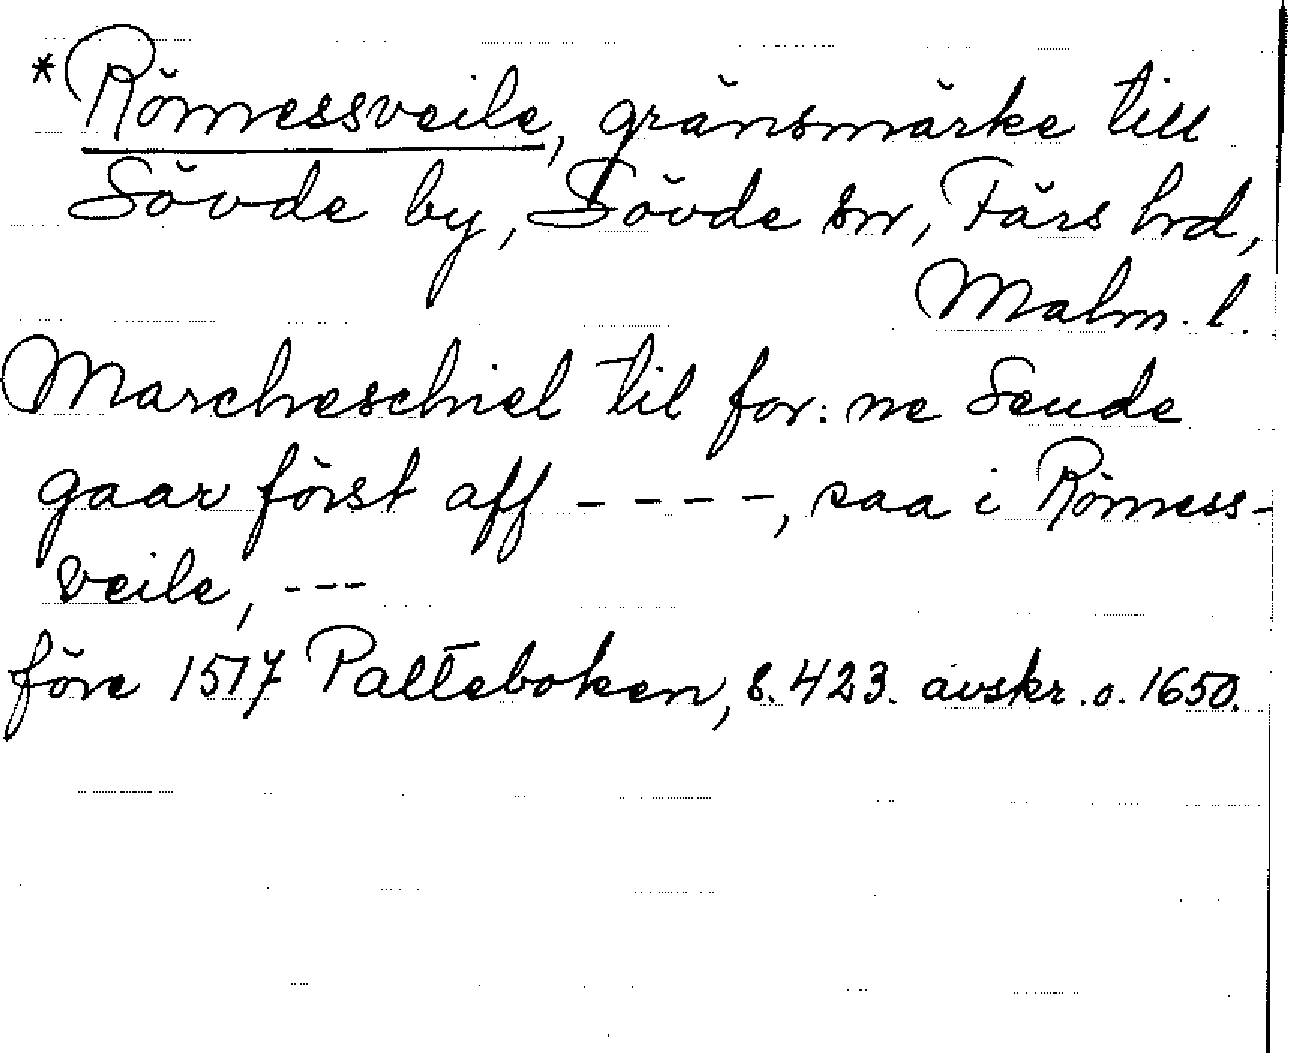 *Römessveile, gränsmärke till
Sövde by, Sövde sn, Färs hrd,
Malm. l.
Marcheschiel til for: ne Seude
gaar först aff ----, saa i Römess-
veile, ---
före 1517 Palteboken, s. 423. avskr. o. 1650.